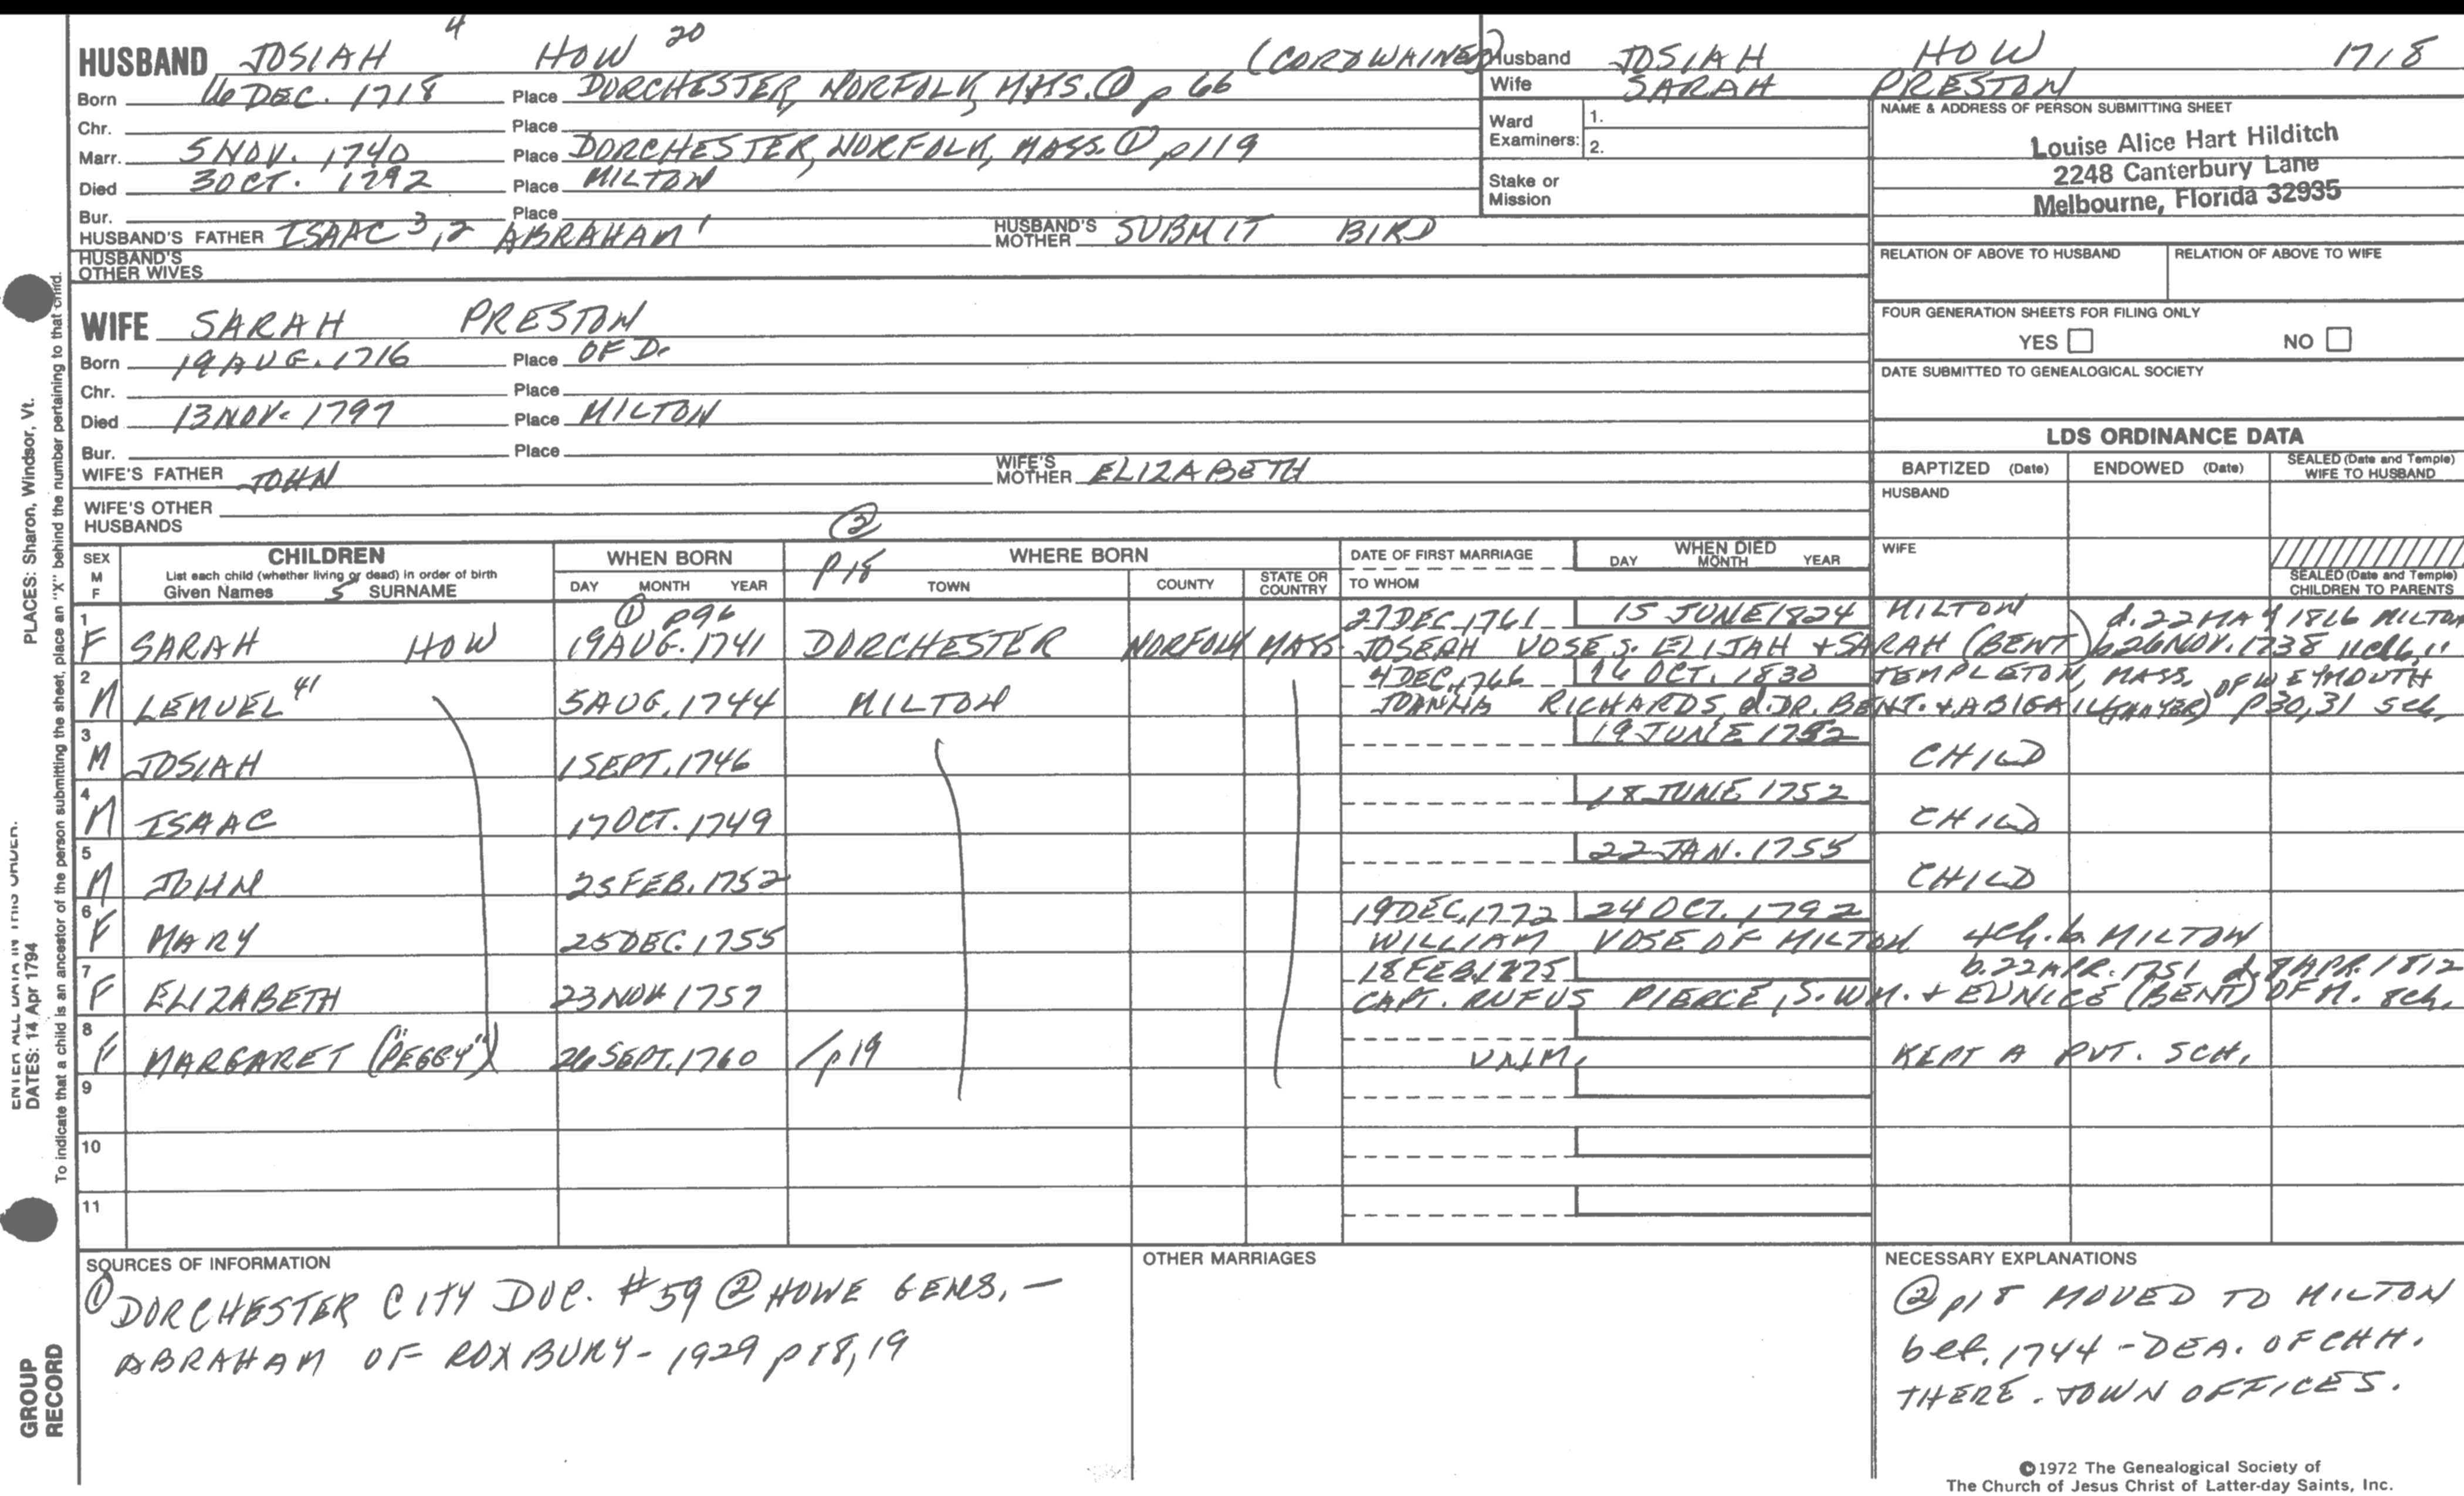 JOSIAH 4 HOW 20 (CORDWAINER)
HUSBAND
Born 16 DEC. 1718 Place DORCHESTER, NORFOLK, MASS. ① p 66
Chr. Place
Marr. 5 NOV. 1740 Place DORCHESTER, NORFOLK, MASS. ① p119
Died 3 OCT. 1792 Place MILTON
Bur. Place
HUSBAND'S FATHER ISAAC 3,2 ABRAHAM 1 HUSBAND'S MOTHER SUBMIT BIRD
HUSBAND'S OTHER WIVES
Husband JOSIAH HOW 1718
Wife SARAH PRESTON
Ward Examiners: 1.
2.
Stake or Mission
NAME & ADDRESS OF PERSON SUBMITTING SHEET
Louise Alice Hart Hilditch
2248 Canterbury Lane
Melbourne, Florida 32935
RELATION OF ABOVE TO HUSBAND RELATION OF ABOVE TO WIFE
FOUR GENERATION SHEETS FOR FILING ONLY
YES NO
DATE SUBMITTED TO GENEALOGICAL SOCIETY
WIFE SARAH PRESTON
Born 19 AUG. 1716 Place OF D.
Chr. Place
Died 13 NOV. 1797 Place MILTON
Bur. Place
WIFE'S FATHER JOHN WIFE'S MOTHER ELIZABETH
WIFE'S OTHER HUSBANDS
LDS ORDINANCE DATA
BAPTIZED (Date) ENDOWED (Date) SEALED (Date and Temple) WIFE TO HUSBAND
HUSBAND
WIFE
SEALED (Date and Temple) CHILDREN TO PARENTS
② p18
SEX M F
CHILDREN
List each child (whether living or dead) in order of birth
Given Names 5 SURNAME
WHEN BORN DAY MONTH YEAR
WHERE BORN TOWN COUNTY STATE OR COUNTRY
DATE OF FIRST MARRIAGE TO WHOM
WHEN DIED DAY MONTH YEAR
① p96 27 DEC. 1761 15 JUNE 1824 MILTON d. 22 MAY 1816 MILTON
1 F SARAH HOW 19 AUG. 1741 DORCHESTER NORFOLK MASS. JOSEPH VOSE S. ELIJAH + SARAH (BENT) b. 26 NOV. 1738 11 ch.
4 DEC. 1766 16 OCT. 1830 TEMPLETON, MASS. OF WEYMOUTH
2 M LEMUEL 41 5 AUG. 1744 MILTON JOANNA RICHARDS, d. DR. BENT. + ABIGAIL (THAYER) p30,31 5 ch.
3 M JOSIAH 1 SEPT. 1746 19 JUNE 1752 CHILD
4 M ISAAC 17 OCT. 1749 18 JUNE 1752 CHILD
5 M JOHN 25 FEB. 1752 22 JAN. 1755 CHILD
19 DEC. 1772 24 OCT. 1792
6 F MARY 25 DEC. 1755 WILLIAM VOSE OF MILTON 4 ch. b. MILTON
18 FEB. 1775 b. 22 APR. 1751 d. 9 APR. 1812
7 F ELIZABETH 23 NOV. 1757 CAPT. RUFUS PIERCE, S. WM. + EUNICE (BENT) OF M. 8 ch.
8 F MARGARET ("PEGGY") 26 SEPT. 1760 /p19 UNM. KEPT A PVT. SCH.
9
10
11
SOURCES OF INFORMATION
① DORCHESTER CITY DOC. #59 ② HOWE GENS. -
ABRAHAM OF ROXBURY - 1929 p 18,19
OTHER MARRIAGES
NECESSARY EXPLANATIONS
② p18 MOVED TO MILTON
bef. 1744 - DEA. OF CHH.
THERE. TOWN OFFICES.
©1972 The Genealogical Society of
The Church of Jesus Christ of Latter-day Saints, Inc.
PLACES: Sharon, Windsor, Vt.
ENTER ALL DATA IN THIS ORDER:
DATES: 14 Apr 1794
To indicate that a child is an ancestor of the person submitting the sheet, place an "X" behind the number pertaining to that child.
GROUP
RECORD